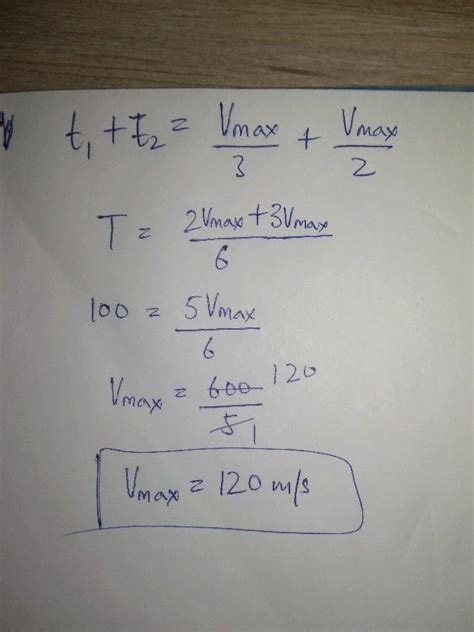 t₁ + t₂ = Vmax/3 + Vmax/2
T = 2Vmax + 3Vmax/6
100 = 5Vmax/6
Vmax = 600/5 120 1
Vmax = 120 m/s